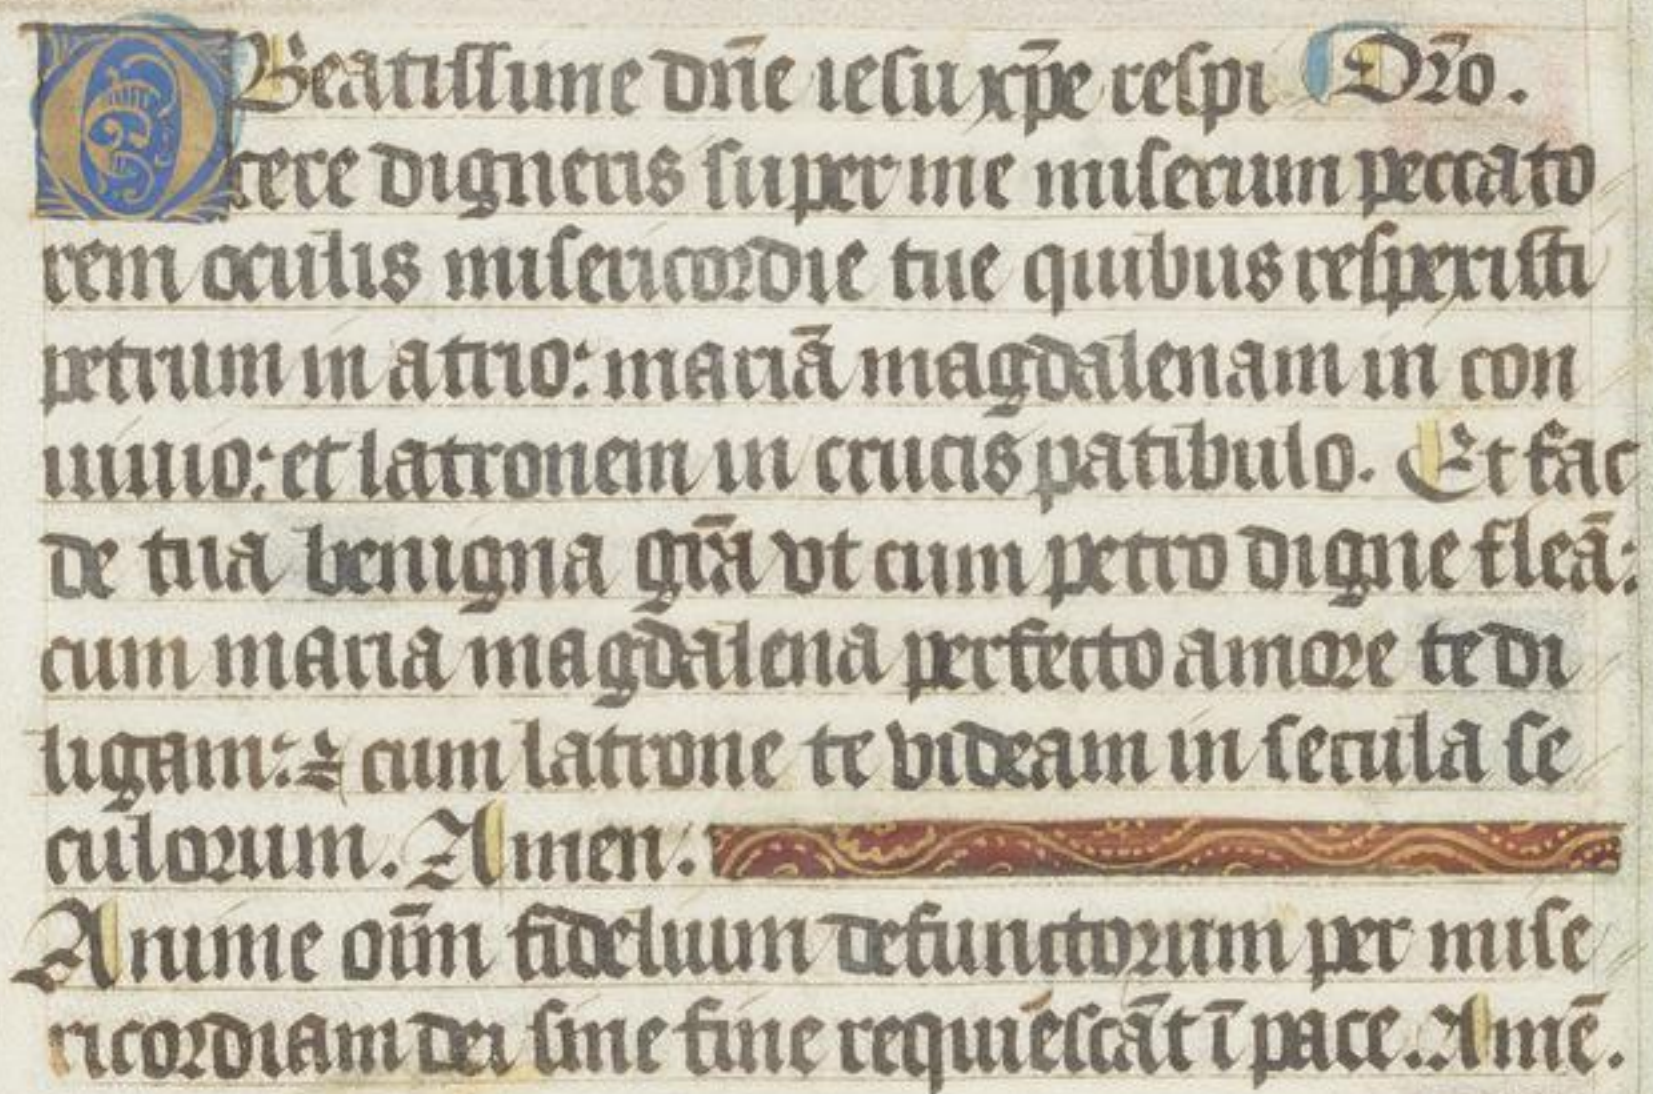 O Beatissime dñe iesu xp̄e respi Oŕo.
cere digneris super me miserum peccato
rem oculis misericordie tue quibus respexisti
petrum in atrio: mariā magdalenam in con
uiuio: et latronem in crucis patibulo. Et fac
de tua benigna gr̄a vt cum petro digne fleā:
cum maria magdalena perfecto amore te di
ligam: ⁊ cum latrone te videam in secula se
culorum. Amen.
Anime oı̄m fidelium defunctorum per mise
ricordiam dei sine fine requiescāt ī pace. Amē.